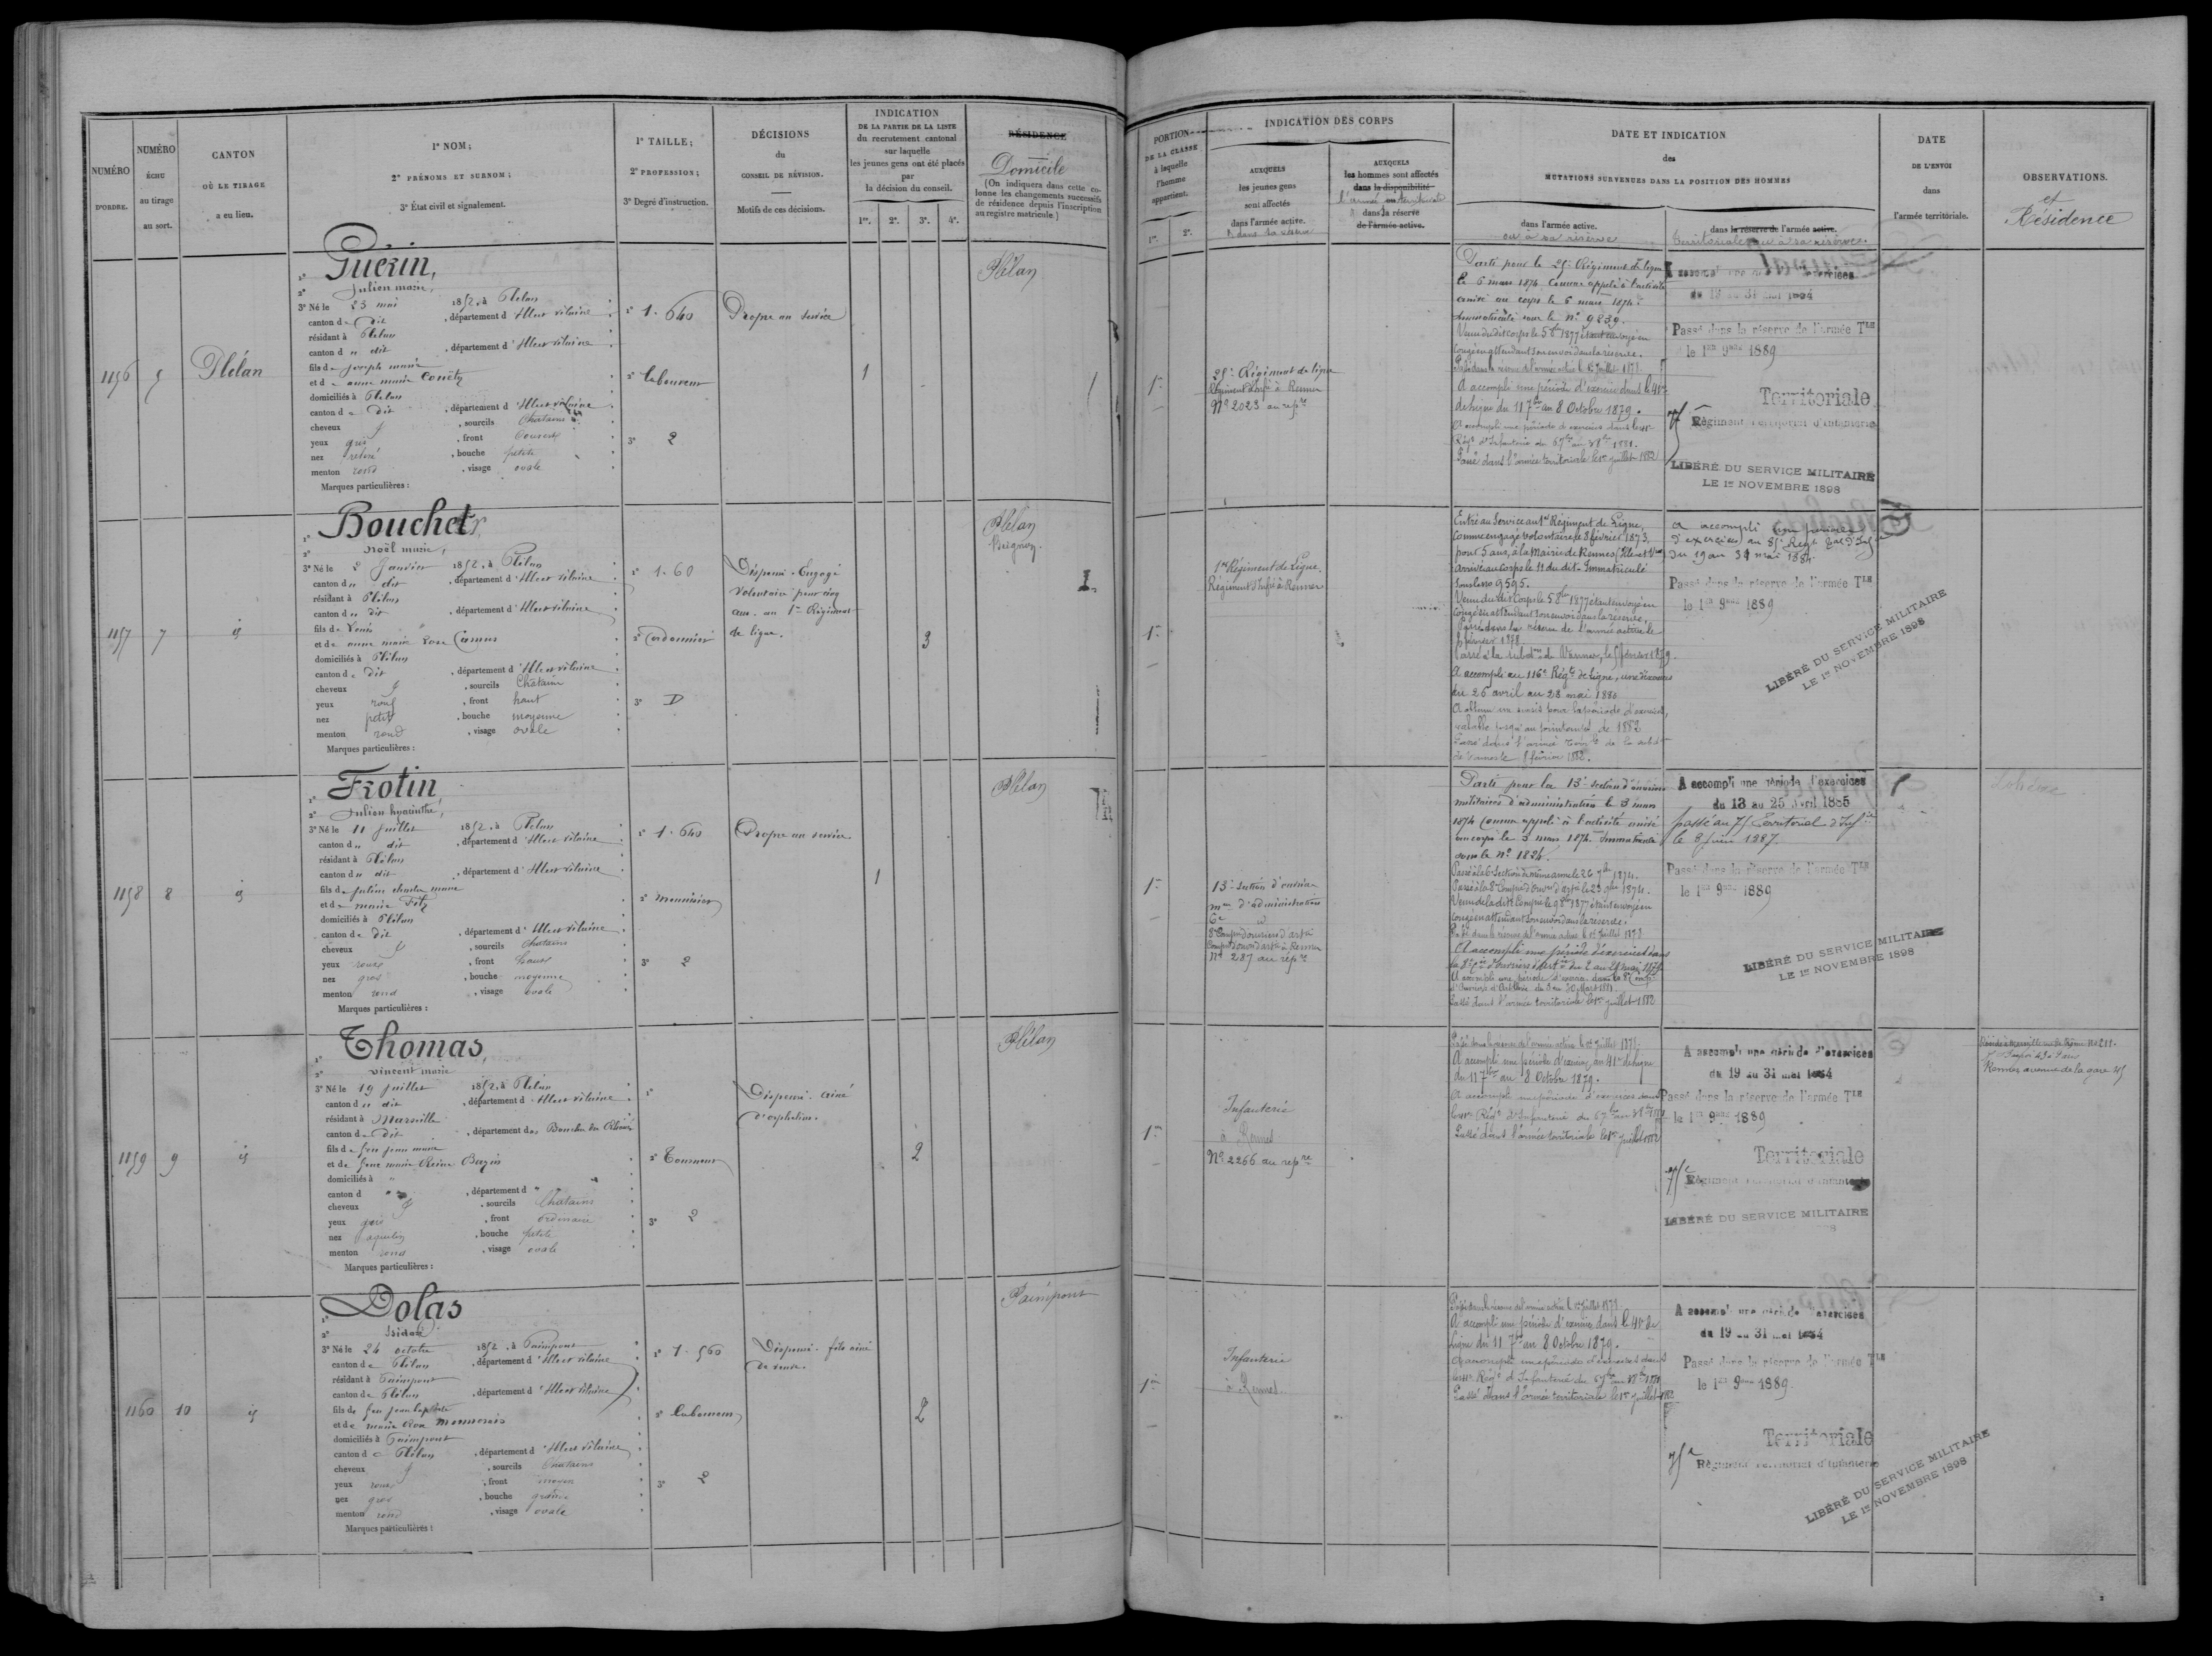 NUMÉRO
D'ORDRE.
NUMÉRO
ÉCHU
au tirage
au sort.
CANTON
OÙ LE TIRAGE
a eu lieu.
1° NOM;
2° PRÉNOMS ET SURNOM;
3° État civil et signalement.
1° TAILLE;
2° PROFESSION;
3° Degré d'instruction.
DÉCISIONS
du
CONSEIL DE RÉVISION.
Motifs de ces décisions.
INDICATION
DE LA PARTIE DE LA LISTE
du recrutement cantonal
sur laquelle
les jeunes gens ont été placés
par
la décision du conseil.
1re. 2e. 3e. 4e.
RÉSIDENCE
Domicile
(On indiquera dans cette co-
lonne les changements successifs
de résidence depuis l'inscription
au registre matricule.)
PORTION
DE LA CLASSE
à laquelle
l'homme
appartient.
1re. 2e.
INDICATION DES CORPS
AUXQUELS
les jeunes gens
sont affectés
dans l'armée active.
AUXQUELS
les hommes sont affectés
dans la disponibilité
dans la réserve
de l'armée active.
DATE ET INDICATION
des
MUTATIONS SURVENUES DANS LA POSITION DES HOMMES
dans l'armée active.
ou à sa réserve
dans la réserve de l'armée active.
territoriale ou à sa réserve.
DATE
DE L'ENVOI
dans
l'armée territoriale.
OBSERVATIONS.
et
Résidence
1156
5
Plélan
1° Guérin,
2° Julien marie,
3° Né le 23 mai 1852, à Plélan
canton de dit, département d'Ille et vilaine
résidant à Plélan
canton d " dit, département d'Ille et vilaine
fils de joseph marie
et de anne marie
domiciliés à Plélan
canton de dit, département d'Ille et vilaine
cheveux, sourcils Chatains
yeux gris, front couvert
nez relevé, bouche petite
menton rond, visage ovale
Marques particulières :
1° 1.640
2° laboureur
3° 2
Propre au service
1
Plélan
1re
25e Régiment de ligne
Régiment d'Infie à Rennes
No 2023 au repre
Parti pour le 25e Régiment de ligne
le 6 mars 1874 Comme appelé à l'activité
arrivé au corps le 6 mars 1874.
Immatriculé sous le No 9839.
Venu du dit Corps le 5 8bre 1877 étant envoyé en
Congé en attendant son envoi dans la réserve.
Passé dans la réserve de l'armée active le 1er Juillet 1878.
A accompli une période d'exercice dans le 41e
de ligne du 11 7bre au 8 Octobre 1879.
Passé dans l'armée territoriale le 1er juillet 1882
Passé dans la réserve de l'armée Tle
le 1er 9bre 1889
Territoriale
75e Régiment Territorial d'Infanterie
LIBÉRÉ DU SERVICE MILITAIRE
LE 1er NOVEMBRE 1898
1157
7
id
1° Bouchet,
2° Noël marie,
3° Né le 2 Janvier 1852, à Plélan
canton d " dit, département d'Ille et vilaine
résidant à Plélan
canton d " dit, département d'Ille et vilaine
fils de Louis
et de anne marie Rose Camus
domiciliés à Plélan
canton de dit, département d'Ille et vilaine
cheveux, sourcils Châtains
yeux roux, front haut
nez petit, bouche moyenne
menton rond, visage ovale
Marques particulières :
1° 1.60
2° Cordonnier
3° D
Dispensé. Engagé
volontaire pour cinq
ans. au 1er Régiment
de ligne.
3
Plélan
1re
1er Régiment de Ligne.
Régiment d'Infie à Rennes
Entré au Service au 1er Régiment de Ligne,
Comme engagé volontaire le 8 février 1873,
pour 5 ans, à la Mairie de Rennes
Arrivé au Corps le 11 du dit. Immatriculé
sous le no 9595.
Venu du dit Corps le 5 8bre 1877 étant envoyé en
Congé en attendant son envoi dans la réserve.
Passé dans la réserve de l'armée active le
8 février 1878
A accompli au 116e Régt de ligne,
du 26 avril au 23 mai 1880
A obtenu un sursis pour la période d'exercices,
valable jusqu'au printemps de 1882
8 février 1882.
a accompli une période
d'exercices au 85e Regt
du 19 au 31 mai 1884
Passé dans la réserve de l'armée Tle
le 1er 9bre 1889
LIBÉRÉ DU SERVICE MILITAIRE
LE 1er NOVEMBRE 1898
1158
8
id
1° Frotin
2° Julien hyacinthe,
3° Né le 11 Juillet 1852, à Plélan
canton d " dit, département d'Ille et vilaine
résidant à Plélan
canton d " dit, département d'Ille et vilaine
fils de julien charles marie
et de marie
domiciliés à Plélan
canton de dit, département d'Ille et vilaine
cheveux, sourcils Chatains
yeux roux, front haut
nez gros, bouche moyenne
menton rond, visage ovale
Marques particulières :
1° 1.640
2° menuisier
3° 2
Propre au service
1
Plélan
1re
13e Section d'ouvriers
mres d'administration
6e id
8e Compie d'ouvriers d'artie
No 287 au repre
Parti pour la 13e Section d'ouvriers
militaires d'administration le 3 mars
1874 Comme appelé à l'activité arrivé
au corps le 3 mars 1874. Immatriculé
sous le No 1824.
Passé dans la réserve de l'armée active le 1er Juillet 1878
A accompli une période d'exercices dans
Passé dans l'armée territoriale le 1er juillet 1882
A accompli une période d'exercices
du 13 au 25 avril 1885
passé au 75 Territorial d'Infie
Passé dans la réserve de l'armée Tle
le 1er 9bre 1889
LIBÉRÉ DU SERVICE MILITAIRE
LE 1er NOVEMBRE 1898
1159
9
id
1° Thomas,
2° vincent marie
3° Né le 19 juillet 1852, à Plélan
canton d " dit, département d'Ille et vilaine
résidant à Marseille
canton de dit, département des Bouches du Rhône
fils de feu jean marie
et de feue marie Reine Bazin
domiciliés à "
canton d ", département d "
cheveux, sourcils Chatains
yeux gris, front ordinaire
nez aquilin, bouche petite
menton rond, visage ovale
Marques particulières :
1°
2° Tourneur
3° 2
Dispensé. ainé
d'orphelins.
2
Plélan
1re
Infanterie
à Rennes
No 2266 au repre
Passé dans la réserve de l'armée active le 1er Juillet 1878.
A accompli une période d'exercices au 41e de ligne
du 11 7bre au 8 Octobre 1879.
Passé dans l'armée territoriale le 1er juillet 1882
A accompli une période d'exercices
du 19 au 31 mai 1884
Passé dans la réserve de l'armée Tle
le 1er 9bre 1889
Territoriale
75e Régiment Territorial d'Infanterie
LIBÉRÉ DU SERVICE MILITAIRE
Rennes avenue de la gare 45
1160
10
id
1° Dolas
2° Isidore
3° Né le 24 octobre 1852, à Paimpont
canton de Plélan, département d'Ille et vilaine
résidant à Paimpont
canton de Plélan, département d'Ille et vilaine
fils de feu jean baptiste
et de marie Rose
domiciliés à Paimpont
canton de Plélan, département d'Ille et vilaine
cheveux, sourcils Chatains
yeux roux, front moyen
nez gros, bouche grande
menton rond, visage ovale
Marques particulières :
1° 1.560
2° laboureur
3° 2
Dispensé. fils ainé
de veuve.
2
Paimpont
1re
Infanterie
à Rennes
Passé dans la réserve de l'armée active le 1er Juillet 1878
A accompli une période d'exercices dans le 41e de
Ligne du 11 7bre au 8 Octobre 1879.
Passé dans l'armée territoriale le 1er juillet 1882
A accompli une période d'exercices
du 19 au 31 mai 1884
Passé dans la réserve de l'armée Tle
le 1er 9bre 1889.
Territoriale
75e Régiment Territorial d'Infanterie
LIBÉRÉ DU SERVICE MILITAIRE
LE 1er NOVEMBRE 1898